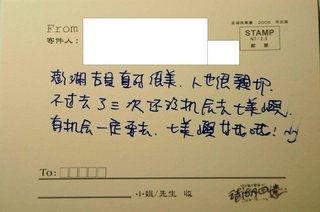 From
寄件人：
STAMP
NT/2.5
郵票
澎湖真的很美，人也很親切，
不过去了三次还沒机会去七美嶼，
有机会一定要去，七美嶼
To:
小姐/先生 收